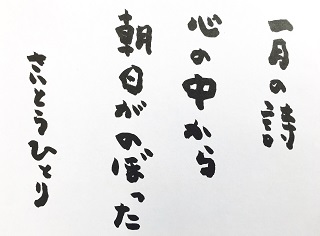 一月の詩
心の中から
朝日がのぼった
さいとうひとり